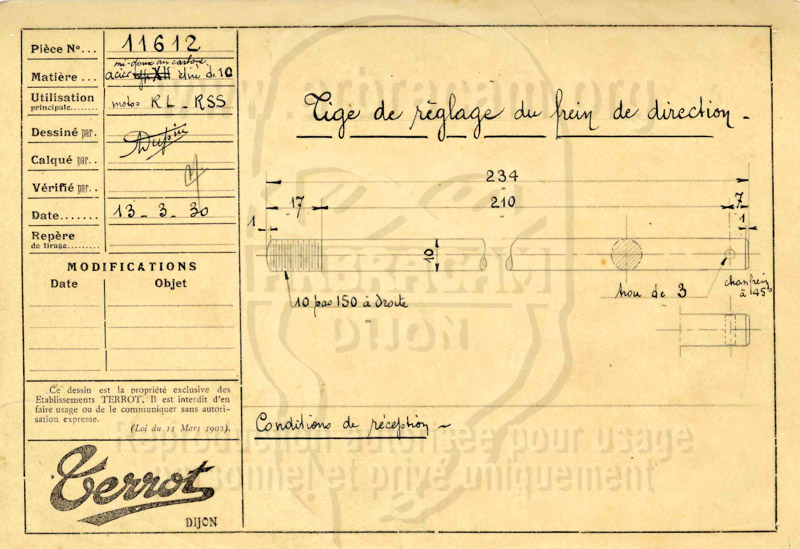 Pièce No... 11612
mi-doux au carbone
Matière... acier XH étiré de 10
Utilisation
principale........ motos RL - RSS
Dessiné par. Dupin
Calqué par..
Vérifié par..
Date....... 13 - 3 - 30
Repère
de tirage.........
MODIFICATIONS
Date Objet
Ce dessin est la propriété exclusive des
Etablissements TERROT. Il est interdit d'en
faire usage ou de le communiquer sans autori-
sation expresse.
(Loi du 11 Mars 1902).
Terrot
DIJON
Tige de réglage du frein de direction -
234
17 210 7
1 1
10
10 pas 150 à droite
trou de 3
chanfrein
à 45°
Conditions de réception -
www.arbracam.org
ARBRACAM
DIJON
Reproduction autorisée pour usage
personnel et privé uniquement